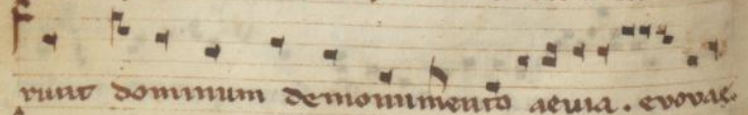 runt dominum de monumento aeuia. evovae.